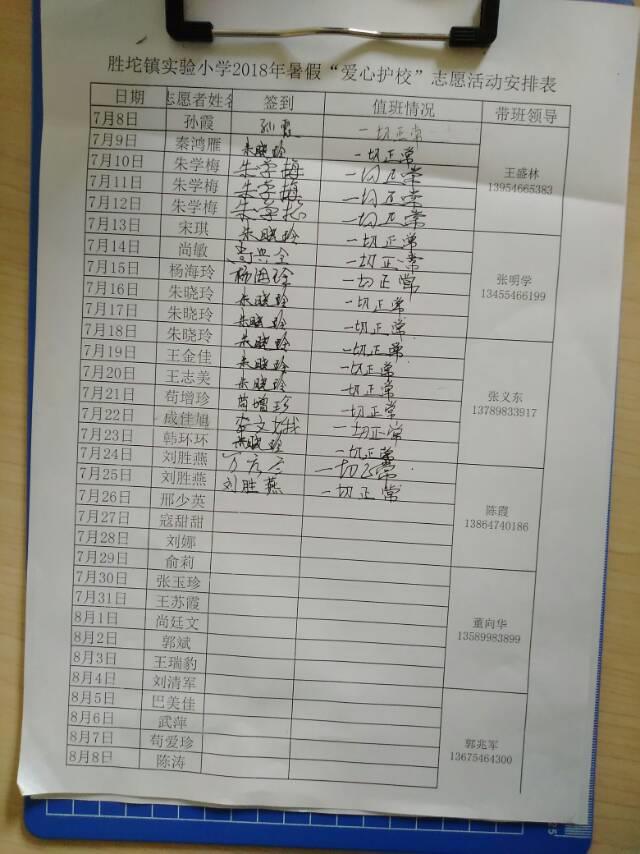 胜坨镇实验小学2018年暑假“爱心护校”志愿活动安排表
日期 志愿者姓名 签到 值班情况 带班领导
7月8日 孙霞 孙霞 一切正常
7月9日 秦鸿雁 朱晓玲 一切正常
7月10日 朱学梅 朱学梅 一切正常 王盛林
7月11日 朱学梅 朱学梅 一切正常 13954665383
7月12日 朱学梅 朱学梅 一切正常
7月13日 宋琪 朱晓玲 一切正常
7月14日 尚敏 一切正常
7月15日 杨海玲 杨海玲 一切正常 张明学
7月16日 朱晓玲 朱晓玲 一切正常 13455466199
7月17日 朱晓玲 朱晓玲 一切正常
7月18日 朱晓玲 朱晓玲 一切正常
7月19日 王金佳 朱晓玲 一切正常
7月20日 王志美 朱晓玲 一切正常 张义东
7月21日 苟增珍 苟增珍 一切正常 13789833917
7月22日 成佳旭 一切正常
7月23日 韩环环 朱晓玲 一切正常
7月24日 刘胜燕 一切正常
7月25日 刘胜燕 刘胜燕 一切正常
7月26日 邢少英 陈霞
7月27日 寇甜甜 13864740186
7月28日 刘娜
7月29日 俞莉
7月30日 张玉珍
7月31日 王苏霞
8月1日 尚廷文 董向华
8月2日 郭斌 13589983899
8月3日 王瑞豹
8月4日 刘清军
8月5日 巴美佳
8月6日 武萍 郭兆军
8月7日 苟爱珍 13675464300
8月8日 陈涛